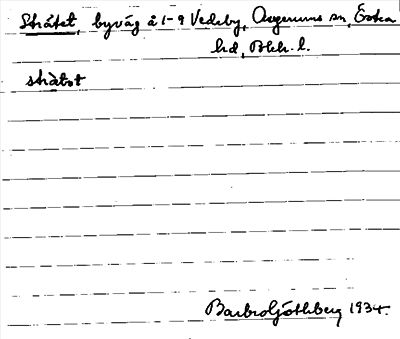 Stråtet, byväg å 1-9 Vedeby, Augerums sn, Östra
hd, Blek. l.
stråtət
Barbro Götlberg 1934.